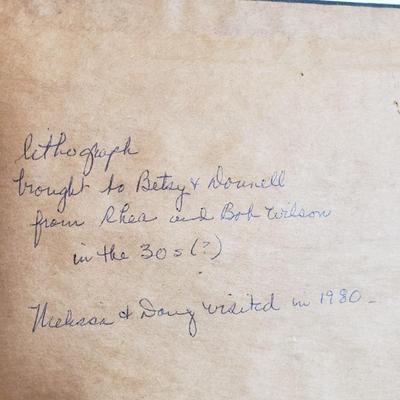 lithograph
brought to Betsy & Donnell
from Rhea and Bob Wilson
in the 30s (?)
Melissa & Doug visited in 1980 -